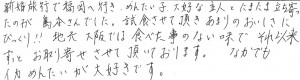 新婚旅行で福岡へ行き、めんたい子大好きな主人とたまたま立ち寄っ
たのが島本さんでした。試食させて頂きあまりのおいしさに
びっくり!! 地元大阪では食べた事のない味で それ以来
ずっとお取り寄せさせて頂いております。 なかでも
イカめんたいが大好きです。